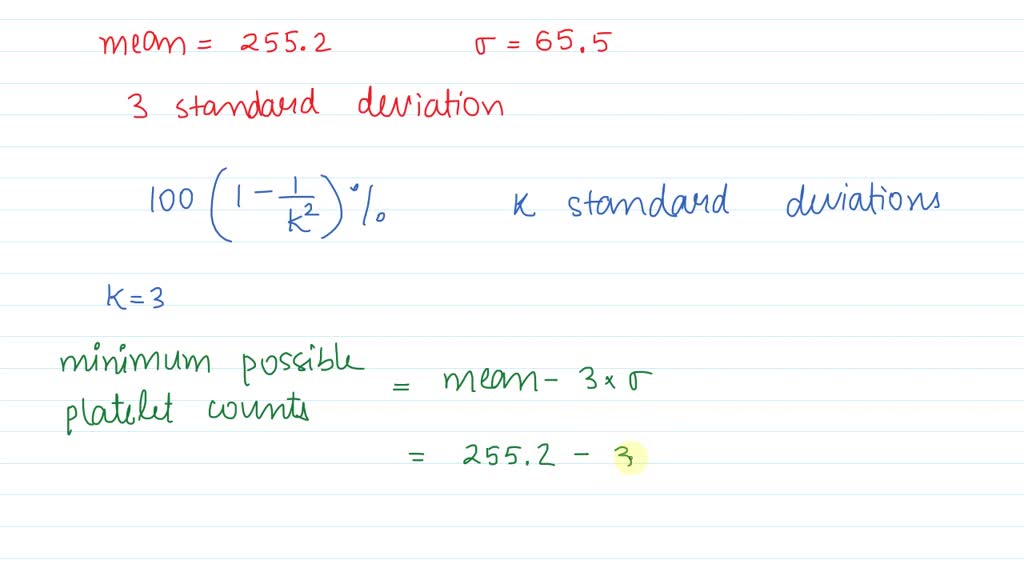 mean = 255.2 σ = 65.5
3 standard deviation
100 (1 - 1/k²) % K standard deviations
K = 3
minimum possible platelet counts = mean - 3 × σ
= 255.2 - 3